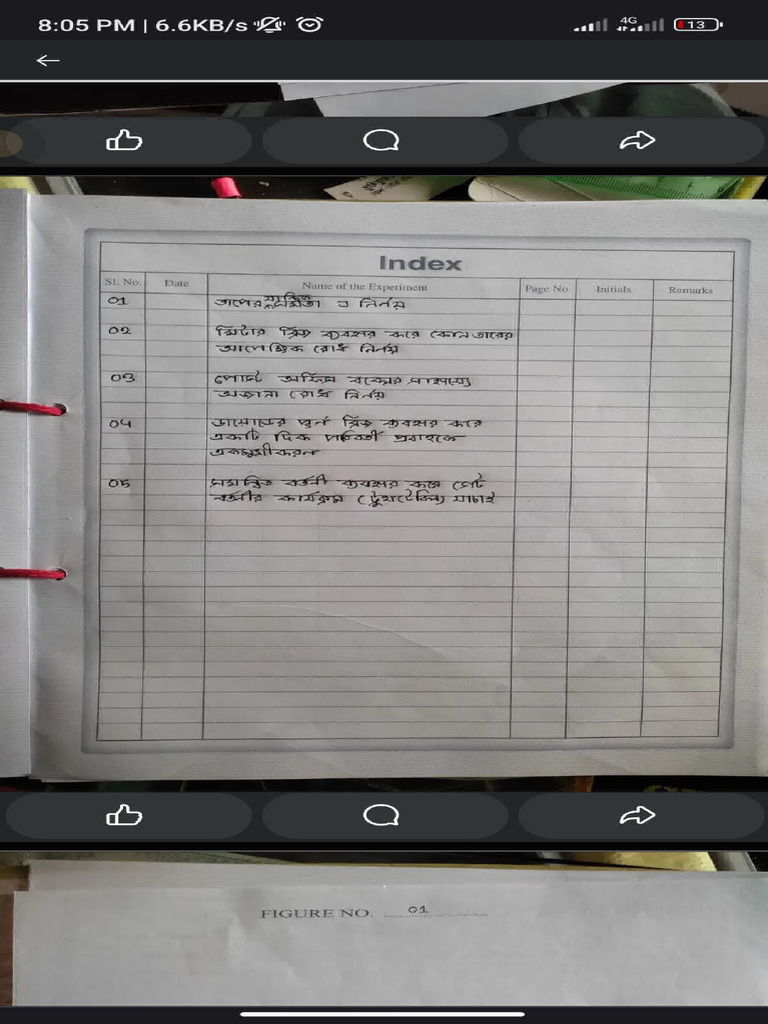 8:05 PM | 6.6KB/s
4G
13
Index
SL No.
Date
Name of the Experiment
Page No.
Initials
Remarks
01
তাপের যান্ত্রিক সমতা J নির্নয়
02
মিটার ব্রিজ ব্যবহার করে কোন তারের
আপেক্ষিক রোধ নির্নয়
03
পোস্ট অফিস বক্সের সাহায্যে
অজানা রোধ নির্নয়
04
ডায়োডের পূর্ন ব্রিজ ব্যবহার করে
একটি দিক পরিবর্তী প্রবাহকে
একমুখীকরন
05
সমন্বিত বর্তনী ব্যবহার করে গেট
বর্তনীর কার্যক্রম (ট্রুথটেবিল) যাচাই
FIGURE NO. 01